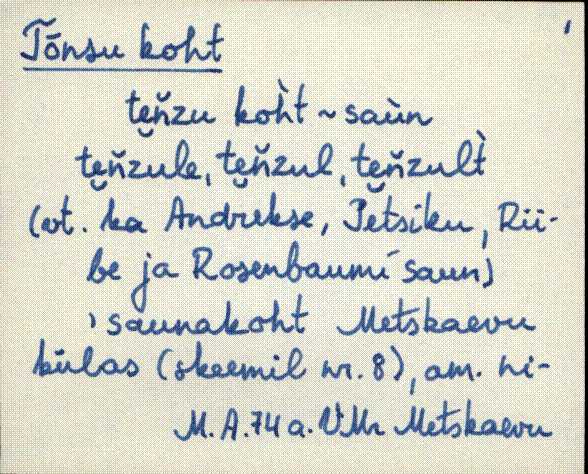 Tõnsu koht
te̮ňzu koh̀t ~ saùn
te̮ňzule, te̮ňzul, te̮ňzult̀
(vt. ka Andrekse, Petsiku, Rii-
be ja Rosenbaumi saun)
, saunakoht Metskaevu
külas (skeemil nr. 8), am. ni-
M. A. 74 a. VMr Metskaevu